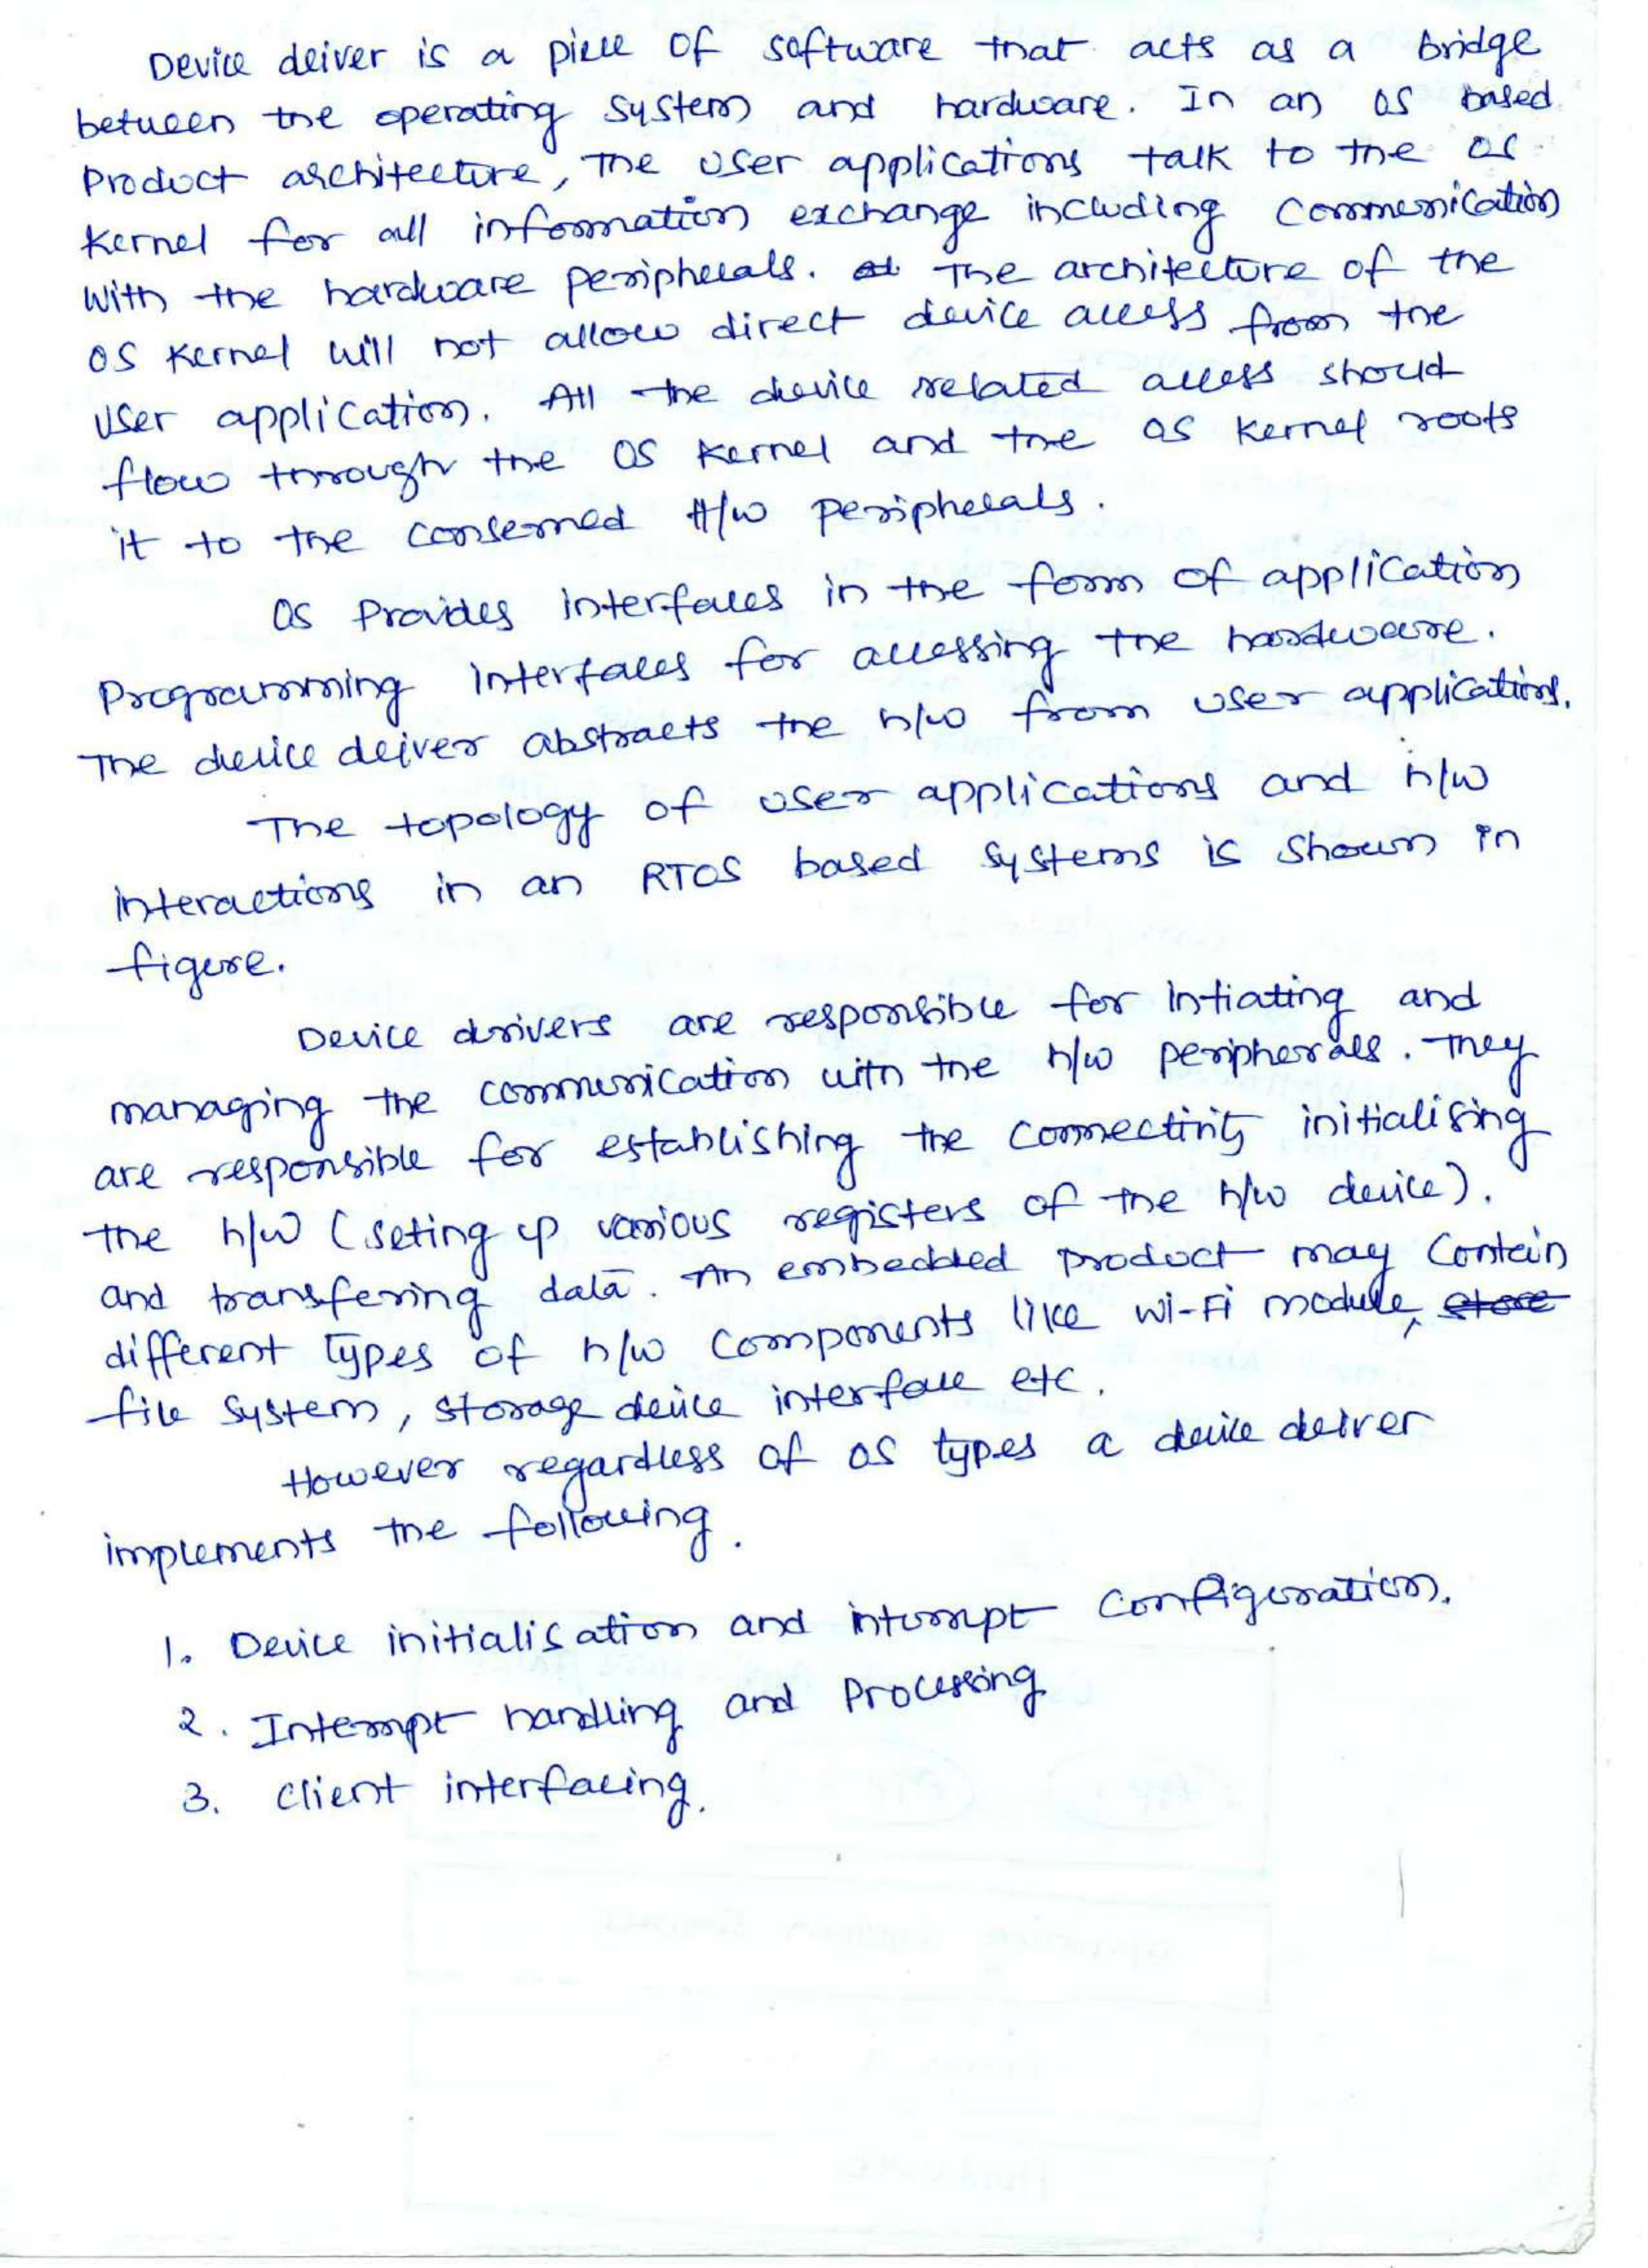 Device driver is a piece of software that acts as a bridge
between the operating system and hardware. In an OS based
Product architecture, The user applications talk to the OS
Kernel for all information exchange including Communication
With the hardware peripherals. The architecture of the
OS Kernel will not allow direct device access from the
User application. All the device related access should
flow through the OS Kernel and the OS Kernel roots
it to the conserned H/w peripherals.
OS Provides interfaces in the form of application
Programming Interfaces for accessing the hardware.
The device driver abstracts the h/w from user applications.
The topology of user applications and h/w
interactions in an RTOS based systems is shown in
figure.
Device drivers are responsible for intiating and
managing the communication with the h/w peripherals. They
are responsible for establishing the connectivity initialising
the h/w (seting up various registers of the h/w device).
and transfering data. An embedded product may Contain
different types of h/w components like Wi-Fi module,
file system, storage device interface etc.
However regardless of OS types a device driver
implements the following.
1. Device initialisation and interrupt configuration.
2. Interrupt handling and Processing
3. client interfacing.